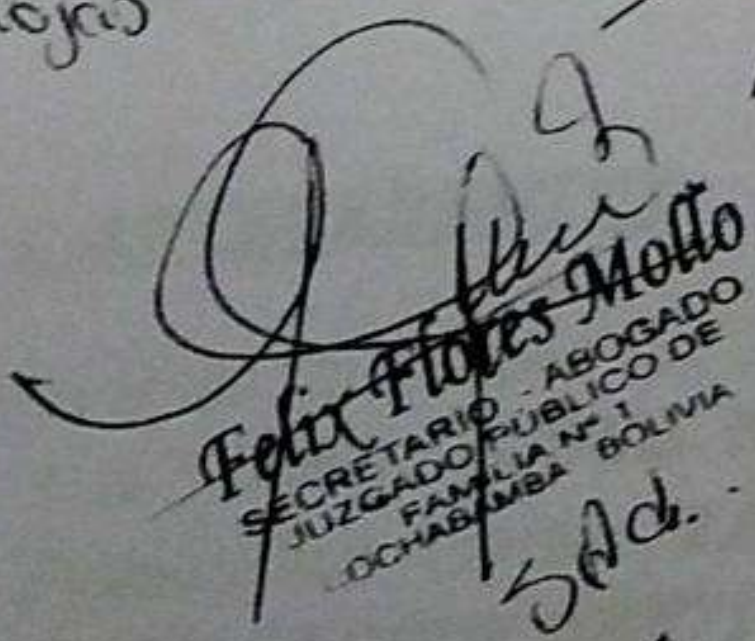 Felix Flores Mollo
SECRETARIO - ABOGADO
JUZGADO PÚBLICO DE
FAMILIA Nº 1
OCHABAMBA BOLIVIA